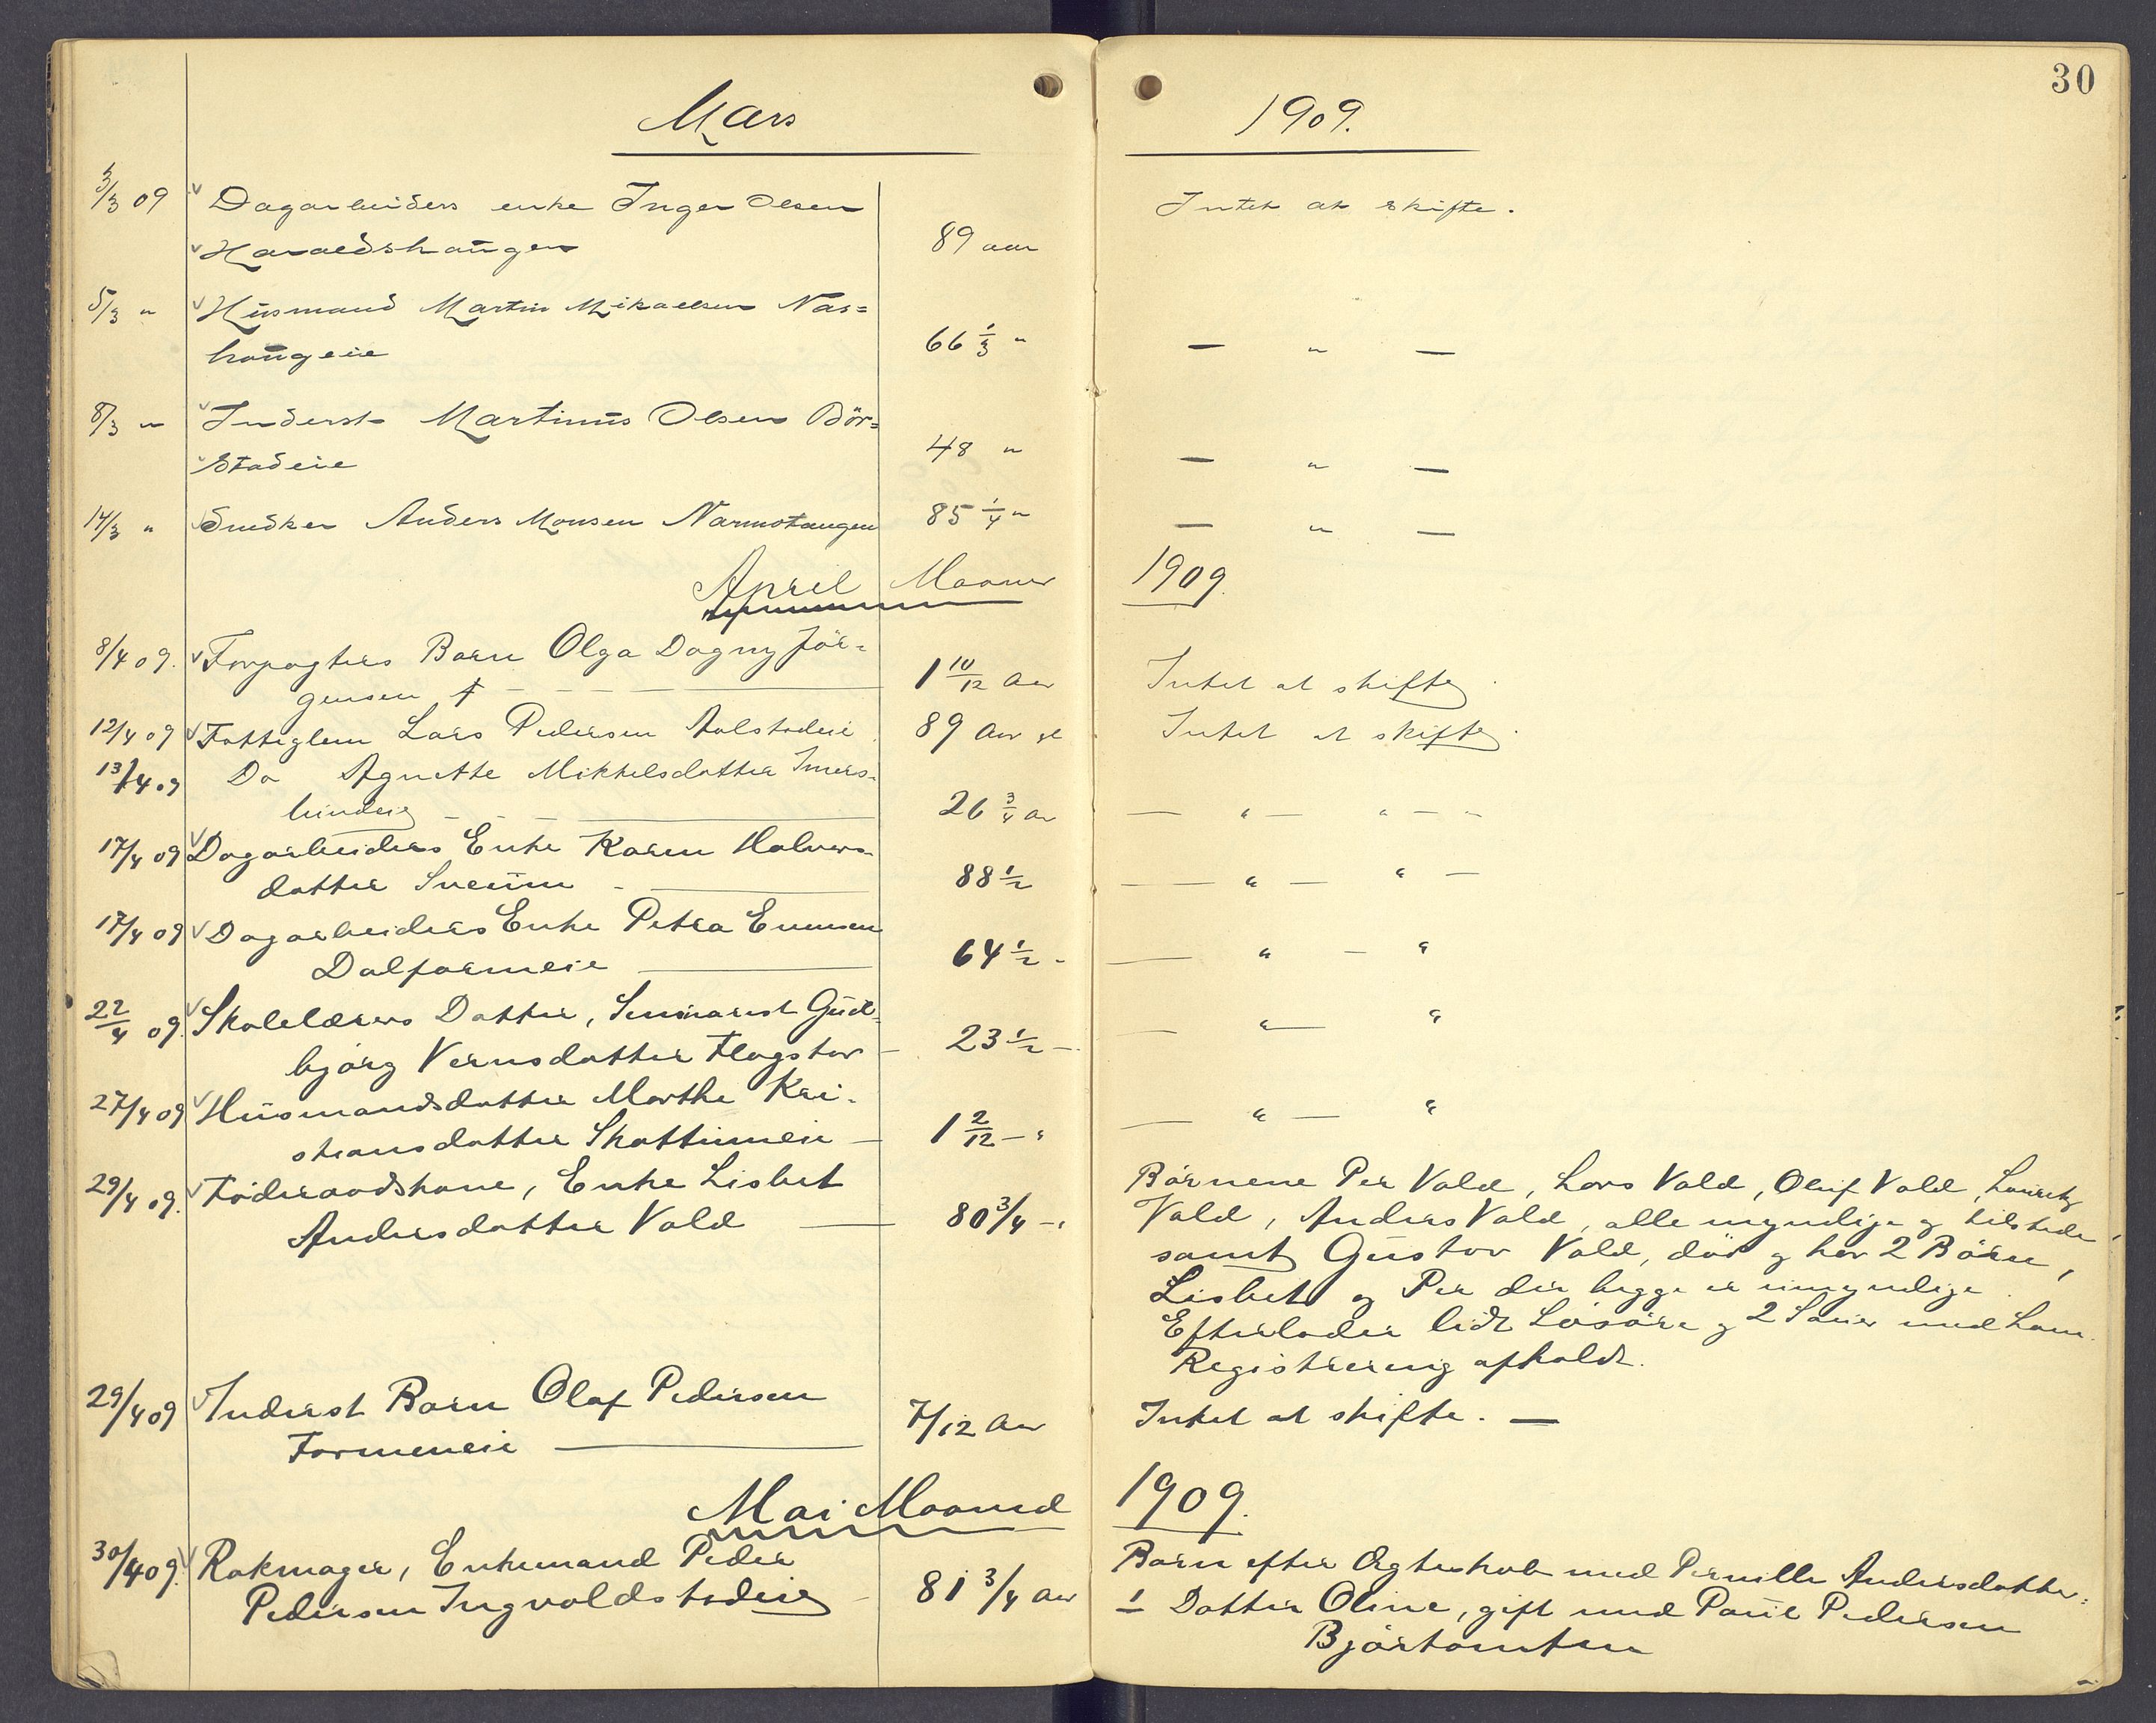 30
Mars 1909.
3/3 09 Dagarbeiders enke Inger Olsen Intet at skifte.
Haraldshaugen 89 aar
5/3 " Husmand Martin Mikaelsen Nas=
haugeie 66 1/3 " — " —
8/3 " Inderst Martinus Olsen Bör=
stadeie 48 " — " —
14/3 " Snedker Anders Monsen Narmotangen 85 1/4 " — " —
April Maaned 1909.
8/4 09. Forpagters Barn Olga Dagny Jör-
gensen 1 10/12 Aar Intet at skifte.
12/4 09 Fattiglem Lars Pedersen Aalstadeie 89 Aar Intet at skifte.
13/4 09 Do Agnethe Mikkelsdatter Imers-
lundeie 26 3/4 Aar — " — " — "
17/4 09 Dagarbeiders Enke Karen Halvors-
datter Sveum 88 1/2 — " — " —
17/4 09 Dagarbeiders Enke Petra Evensen
Dalfarmeie 64 1/2 - — " — "
22/4 09. Skolelærers Datter, Seminarist Gud-
björg Vernsdatter Flagstad — 23 1/2 — — " — "
27/4 09 Husmandsdatter Marthe Kri-
stiansdatter Skattumeie — 1 2/12 - " — " — "
29/4 09. Föderaadskone, Enke Lisbet Börnene Per Vold, Lars Vold, Oluf Vold, Lauritz
Andersdatter Vold — 80 3/4 - " Vold, Anders Vold, alle myndige og tilstede,
samt Gustav Vold, död og har 2 Börn,
Lisbet og Per der begge er umyndige.
Efterlader lidt Lösöre og 2 Sauer med Lam.
Registrering afholdt.
29/4 09 Inderst Barn Olaf Pedersen 7/12 Aar Intet at skifte. —
Farmeneie
Mai Maaned 1909.
30/4 09. Rokmager, Enkemand Peder Barn efter Ægteskab med Pernille Andersdatter:
Pedersen Ingvoldstadeie 81 3/4 Aar 1 Datter Oline, gift med Paul Pedersen
Bjørtomten